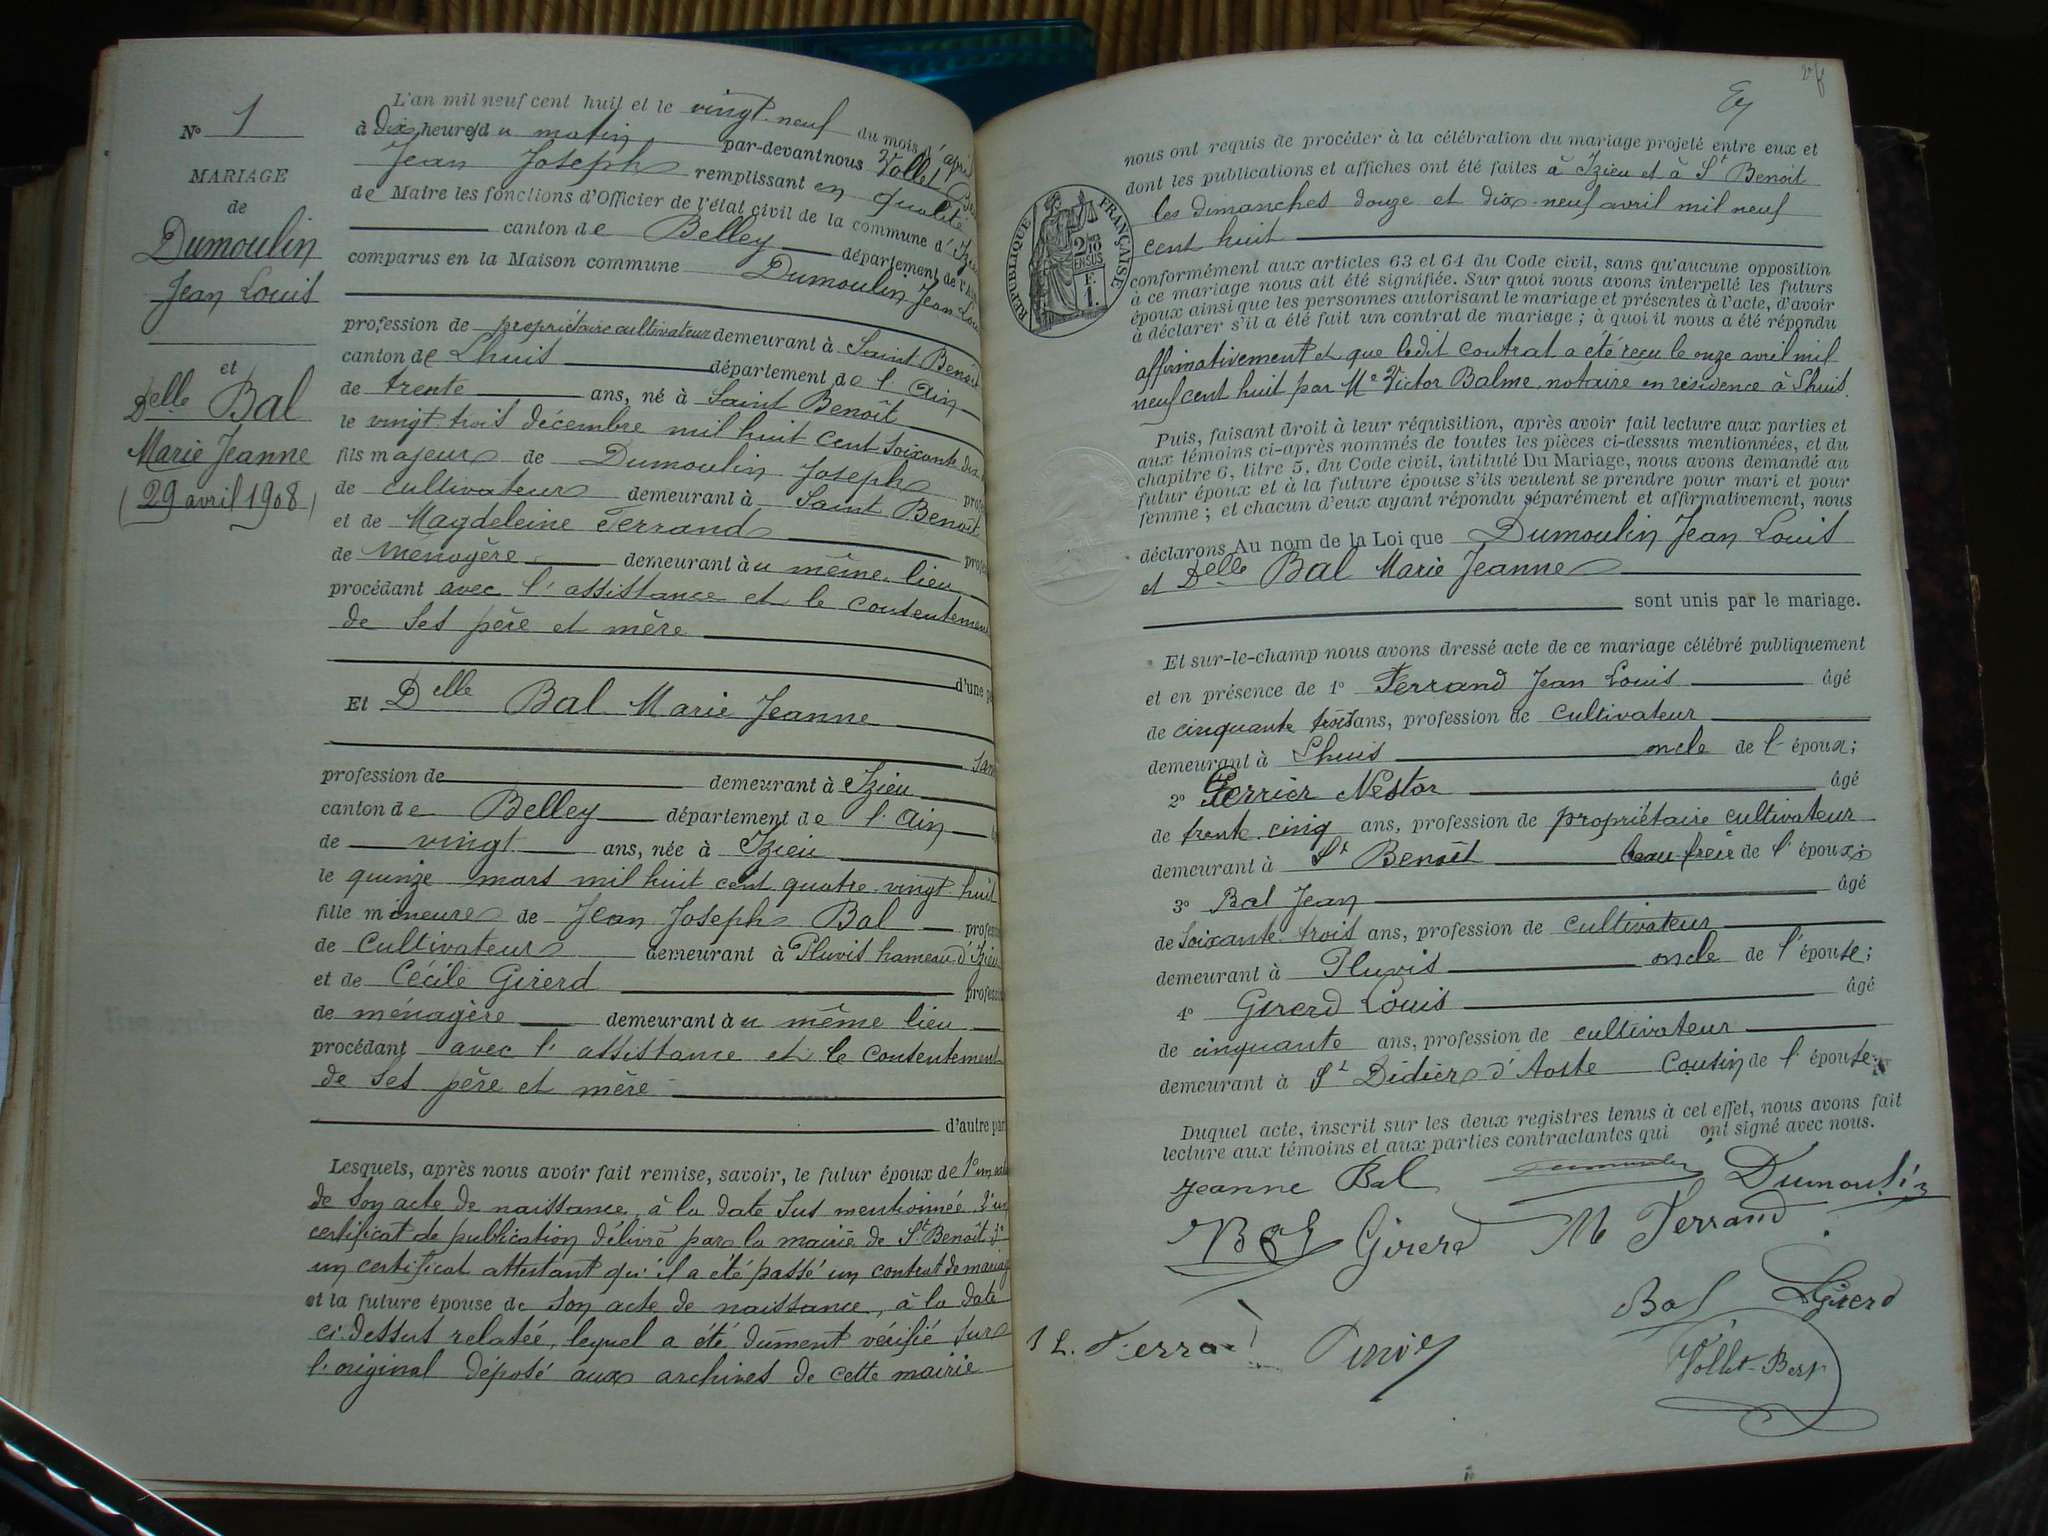 N° 1
MARIAGE
de
Dumoulin
Jean Louis
et
Delle Bal
Marie Jeanne
(29 avril 1908)
L'an mil neuf cent huit et le vingt-neuf du mois d'avril
à dix heures du matin par-devant nous Vollet
Jean Joseph remplissant en qualité
de Maire les fonctions d'Officier de l'état civil de la commune d'Izieu
canton de Belley département de l'Ain
comparus en la Maison commune Dumoulin Jean Louis
profession de propriétaire cultivateur demeurant à Saint Benoit
canton de Lhuis département de l'Ain
de trente ans, né à Saint Benoît
le vingt-trois décembre mil huit cent soixante dix
fils majeur de Dumoulin Joseph
de cultivateur demeurant à Saint Benoit
et de Magdeleine Ferrand
de ménagère demeurant au même lieu
procédant avec l'assistance et le consentement
de ses père et mère
d'une
Et Delle Bal Marie Jeanne
sans
profession de demeurant à Izieu
canton de Belley département de l'Ain
de vingt ans, née à Izieu
le quinze mars mil huit cent quatre-vingt huit
fille mineure de Jean Joseph Bal
de cultivateur demeurant à Pluvis hameau d'Izieu
et de Cécile Girerd
de ménagère demeurant au même lieu
procédant avec l'assistance et le consentement
de ses père et mère
d'autre part
Lesquels, après nous avoir fait remise, savoir, le futur époux de 1°
de son acte de naissance, à la date sus mentionnée 2° un
certificat de publication délivré par la mairie de St Benoît 3°
un certificat attestant qu'il a été passé un contrat de mariage
et la future épouse de son acte de naissance, à la date
ci-dessus relatée, lequel a été dûment vérifié sur
l'original déposé aux archives de cette mairie
nous ont requis de procéder à la célébration du mariage projeté entre eux et
dont les publications et affiches ont été faites à Izieu et à St Benoit
les dimanches douze et dix-neuf avril mil neuf
cent huit
RÉPUBLIQUE FRANÇAISE
conformément aux articles 63 et 64 du Code civil, sans qu'aucune opposition
à ce mariage nous ait été signifiée. Sur quoi nous avons interpellé les futurs
époux ainsi que les personnes autorisant le mariage et présentes à l'acte, d'avoir
à déclarer s'il a été fait un contrat de mariage ; à quoi il nous a été répondu
affirmativement et que ledit contrat a été reçu le onze avril mil
neuf cent huit par Me Victor Balme, notaire en résidence à Lhuis.
Puis, faisant droit à leur réquisition, après avoir fait lecture aux parties et
aux témoins ci-après nommés de toutes les pièces ci-dessus mentionnées, et du
chapitre 6, titre 5, du Code civil, intitulé Du Mariage, nous avons demandé au
futur époux et à la future épouse s'ils veulent se prendre pour mari et pour
femme ; et chacun d'eux ayant répondu séparément et affirmativement, nous
déclarons Au nom de la Loi que Dumoulin Jean Louis
et Delle Bal Marie Jeanne
sont unis par le mariage.
Et sur-le-champ nous avons dressé acte de ce mariage célébré publiquement
et en présence de 1° Ferrand Jean Louis âgé
de cinquante trois ans, profession de cultivateur
demeurant à Lhuis oncle de l'époux ;
2° Perrier Nestor âgé
de trente cinq ans, profession de propriétaire cultivateur
demeurant à St Benoît beau-frère de l'époux ;
3° Bal Jean âgé
de soixante-trois ans, profession de cultivateur
demeurant à Pluvis oncle de l'épouse ;
4° Girerd Louis âgé
de cinquante ans, profession de cultivateur
demeurant à St Didier d'Aoste Cousin de l'épouse.
Duquel acte, inscrit sur les deux registres tenus à cet effet, nous avons fait
lecture aux témoins et aux parties contractantes qui ont signé avec nous.
Jeanne Bal Dumoulin
Bal Girerd M Ferrand
Bal LGirerd
J L. Ferrand